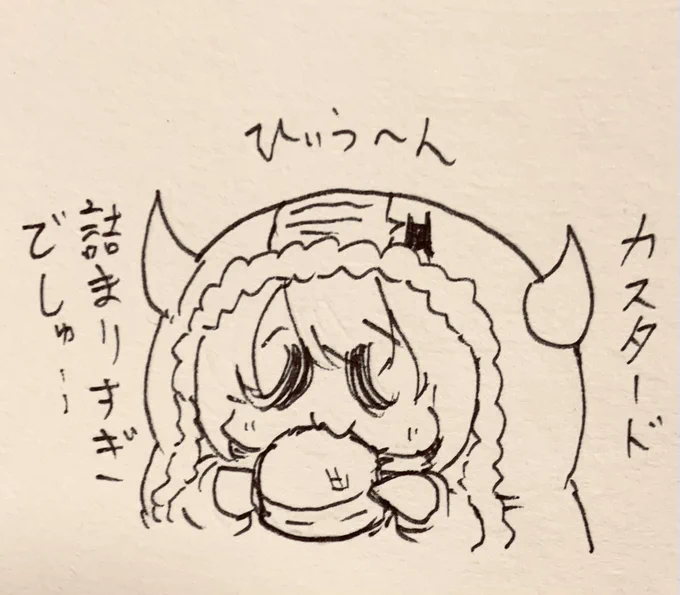 ひぃう〜ん
カスタード
詰まりすぎー
でしゅ…